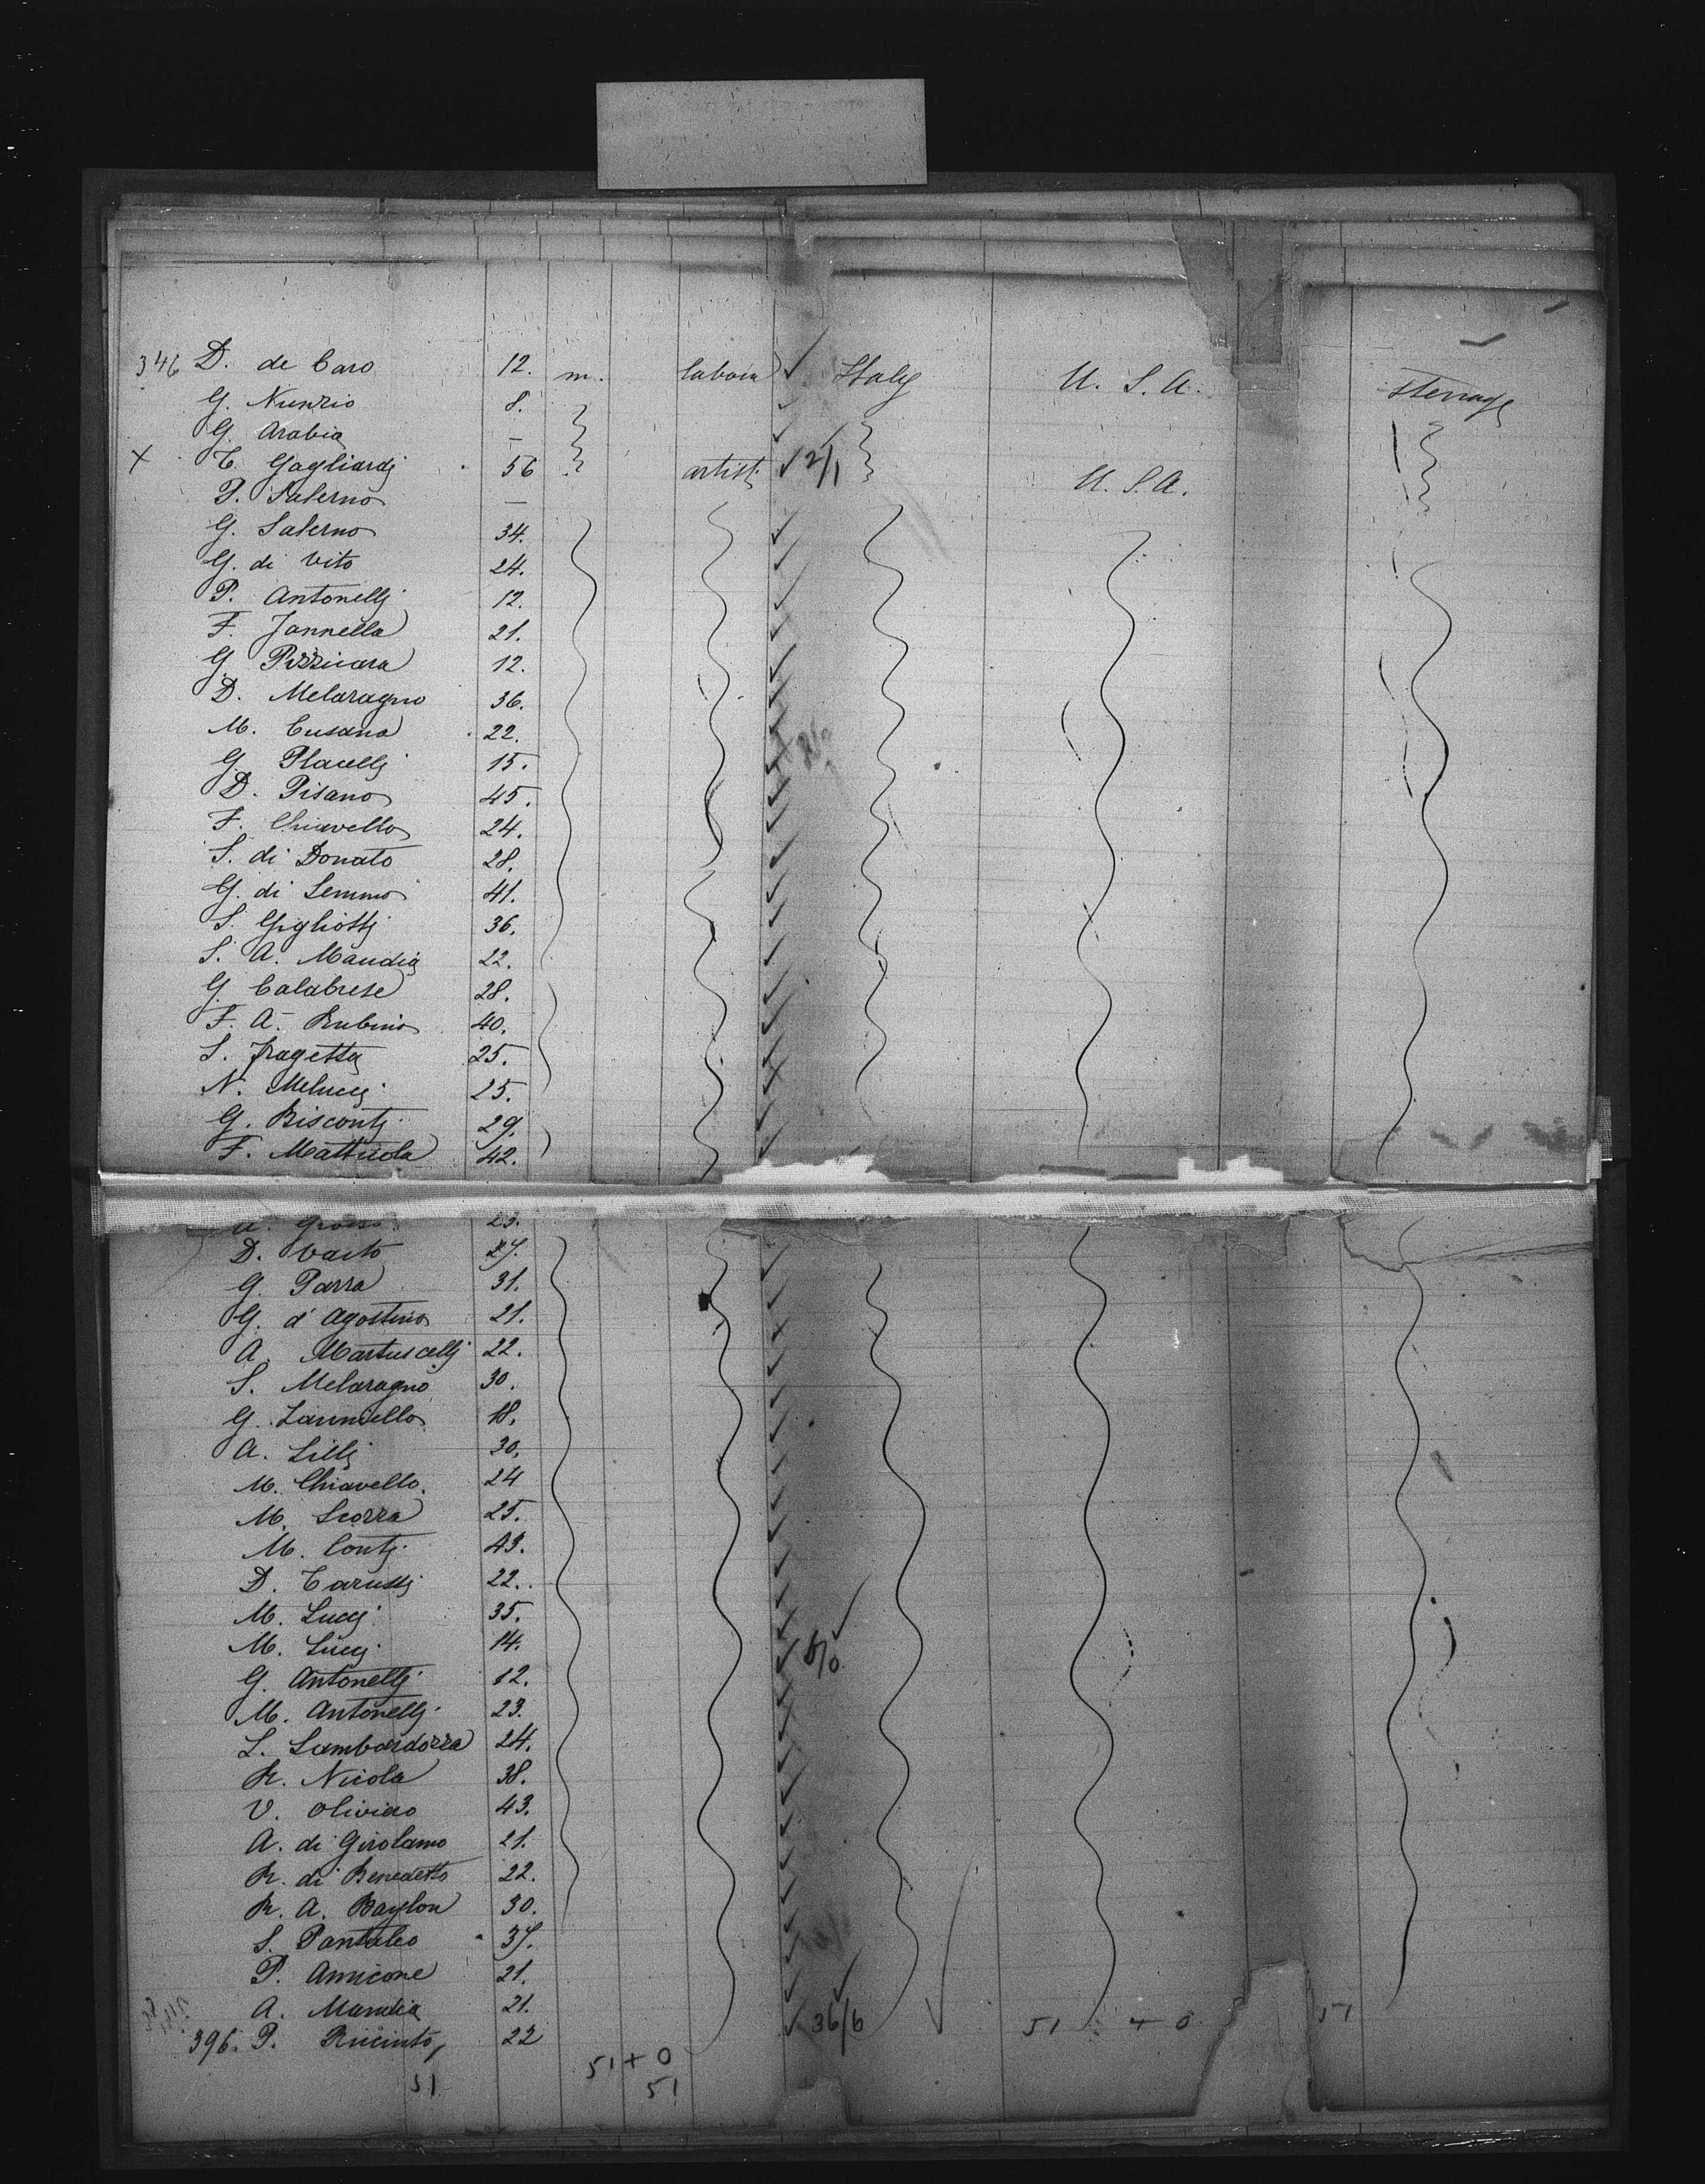 346 D. de Caro 12. m. labour Italy U. S. A. sterrage
G. Nunzio 8.
G. Arabia —
X C. Gagliardi 56 artist 2/1 U. S. A.
P. Salerno —
G. Salerno 34.
G. di Vito 24.
P. Antonelli 12.
F. Jannella 21.
G. Pizzicara 12.
D. Melaragno 36.
M. Cusano 22.
G. Placelli 15.
D. Pisano 45.
F. Chiavello 24.
S. di Donato 28.
G. di Lemmo 41.
S. Gigliotti 36.
S. A. Mandia 22.
G. Calabrese 28.
F. A. Rubino 40.
S. Fragetta 25.
N. Melucci 25.
G. Bisconti 29.
F. Mattucola 42.
A. Grosso 23.
D. Vasto 27.
G. Parra 31.
G. d'Agostino 21.
A. Martuscelli 22.
S. Melaragno 30.
G. Zanniello 18.
A. Lilli 30.
M. Chiavello. 24
M. Scorza 25.
M. Conti 43.
D. Carussi 22.
M. Lucci 35.
M. Lucci 14. 6/0
G. Antonelli 12.
M. Antonelli 23.
L. Lombardozza 24.
R. Nicola 38.
V. Olivido 43.
A. di Girolamo 21.
R. di Benedetto 22.
R. A. Baylon 30.
S. Pantaleo 37.
P. Amicone 21.
A. Mandia 21.
396. P. Ricinto, 22 36/6 51 + 0 51
51 51 + 0
51